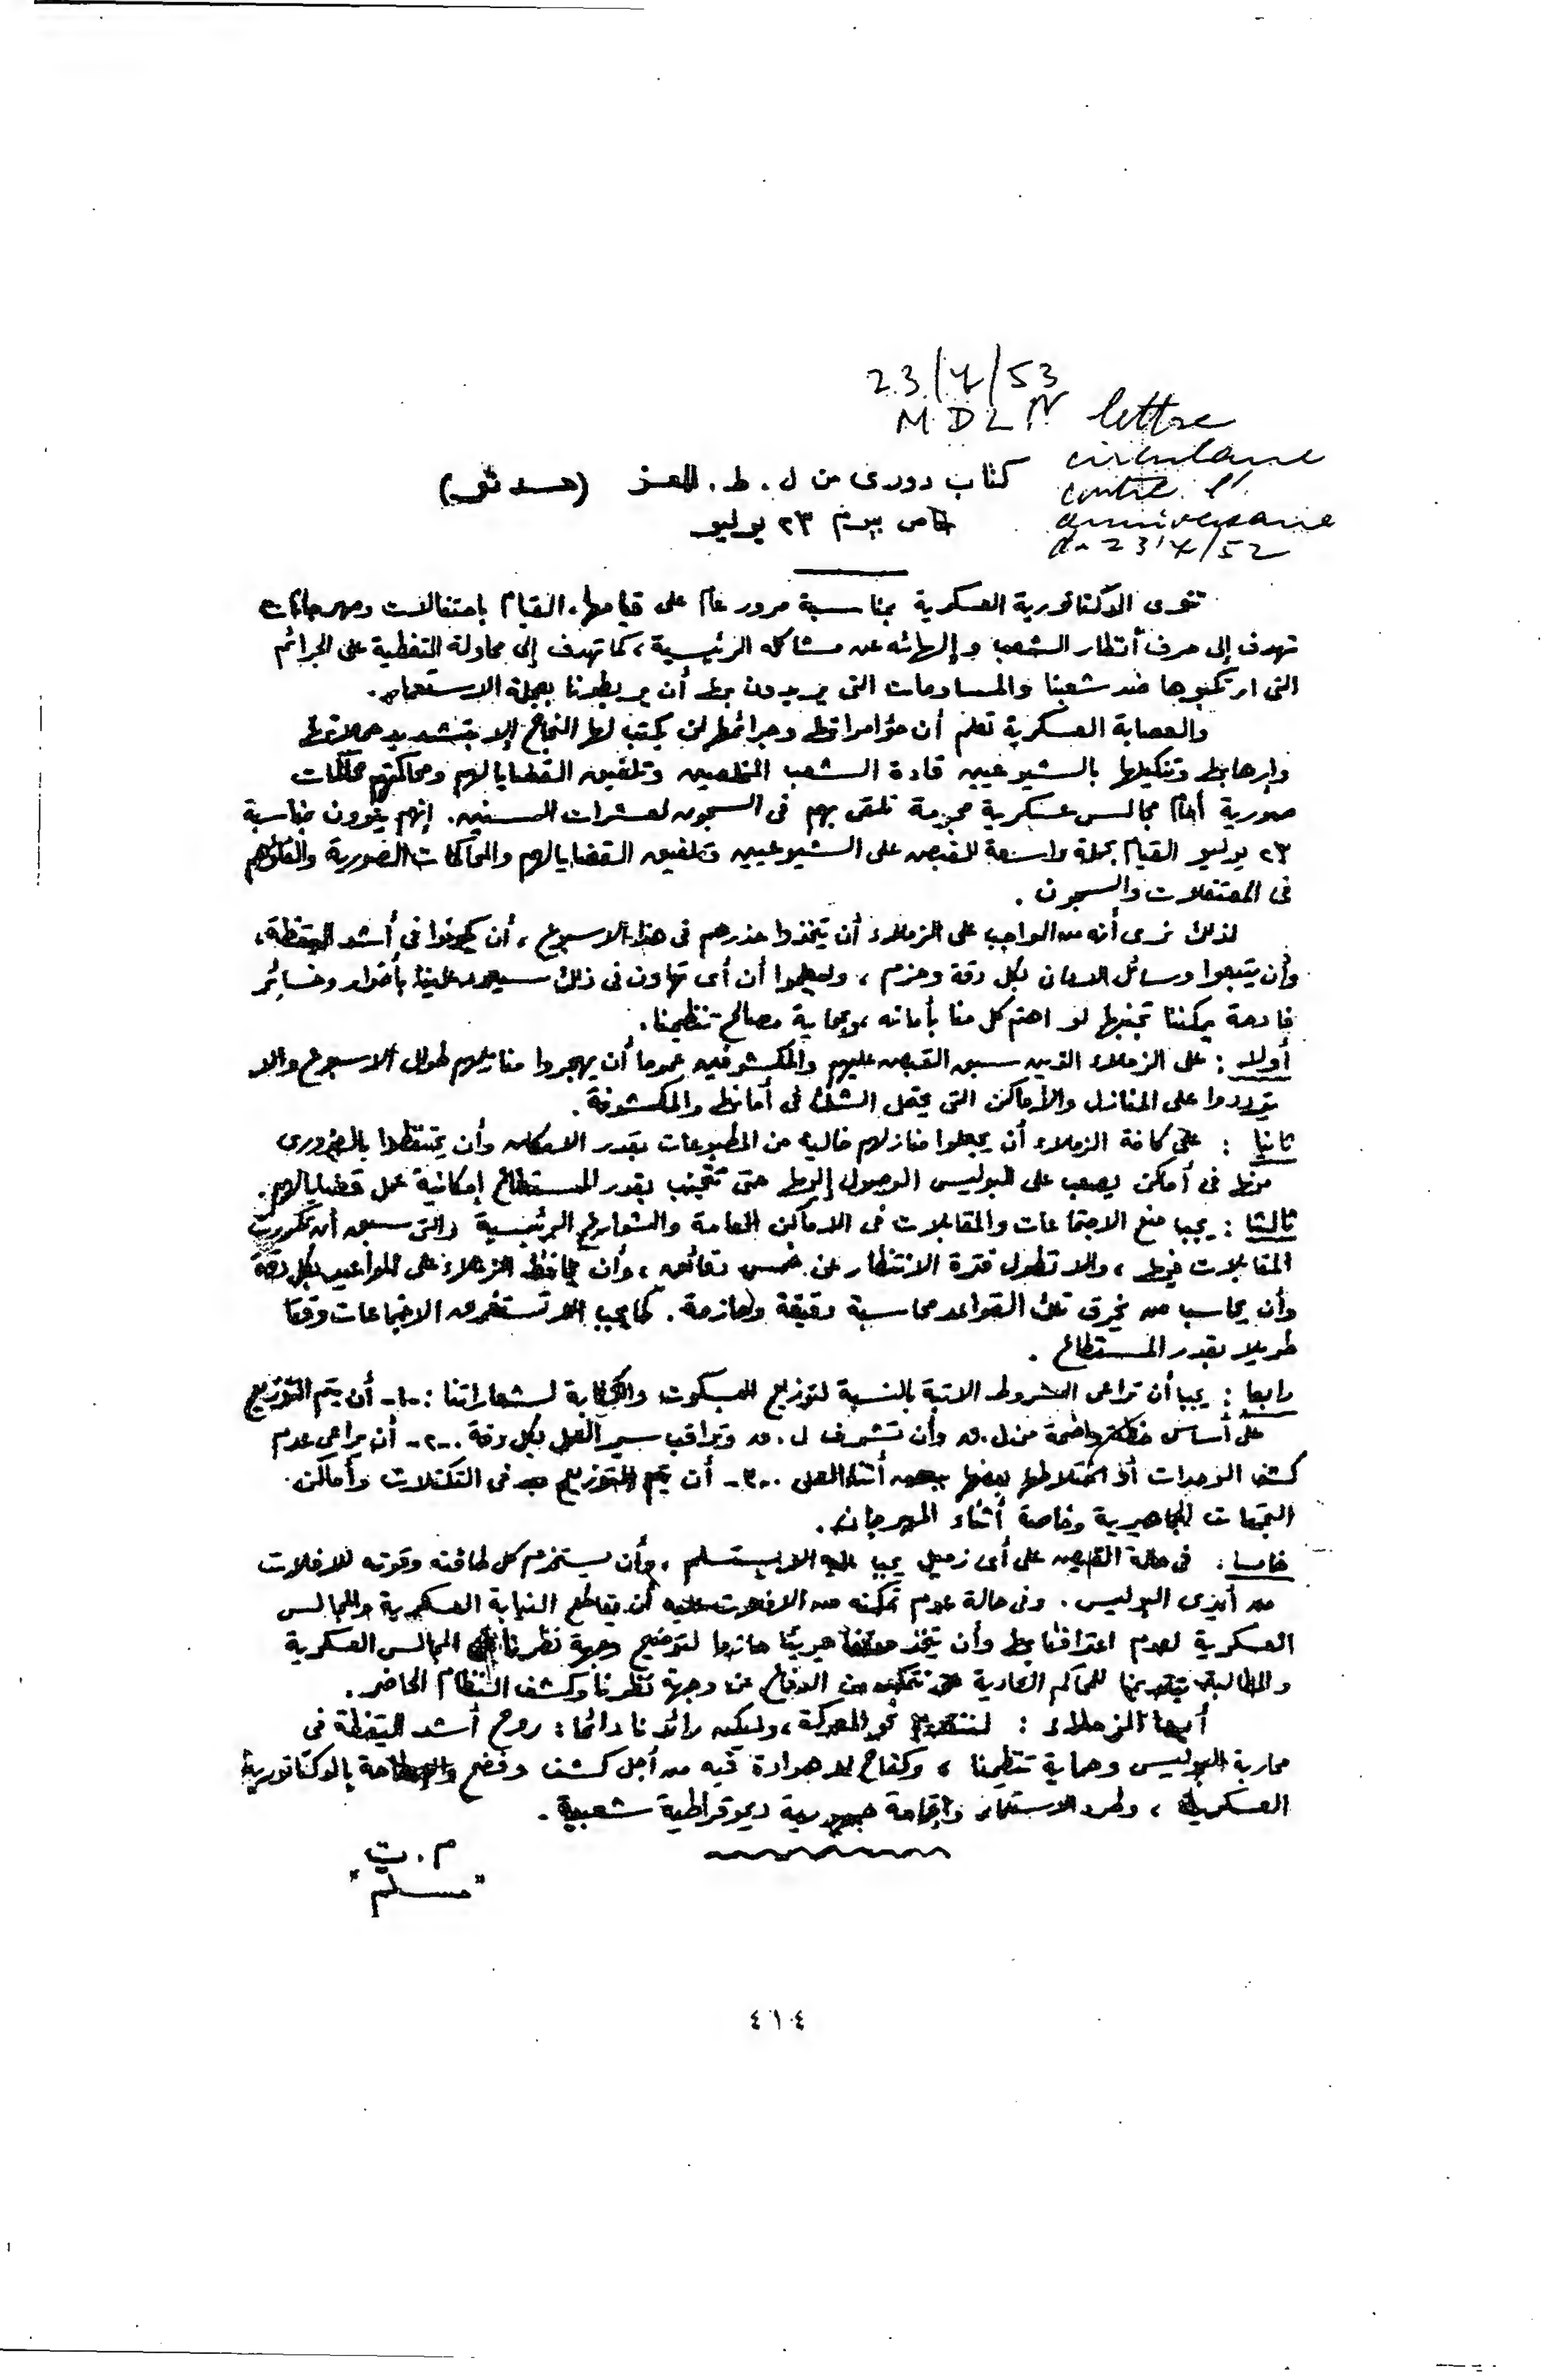 23/7/53
MDLN lettre
circulaire
contre l'
anniversaire
du 23/7/52
كتاب دورى من ل . ط . للعز (حدتو)
خاص بيوم ٢٣ يوليو
تنوى الدكتاتورية العسكرية بمناسبة مرور عام على قيامها، القيام باحتفالات ومهرجانات
تهدف إلى صرف أنظار الشعب وإلهائه عن مشاكله الرئيسية، كما تهدف إلى محاولة التغطية على الجرائم
التى ارتكبوها ضد شعبنا والمساومات التى يريدون بها أن يربطونا بعجلة الاستعمار.
والعصابة العسكرية تعلم أن مؤامراتها وجرائمها لن يكتب لها النجاح إلا بتشديد حملاتها
وإرهابها وتنكيلها بالشيوعيين قادة الشعب المخلصين وتلفيق القضايا لهم ومحاكمتهم محاكمات
صورية أمام مجالس عسكرية مجرمة تلقى بهم فى السجون لعشرات السنين. إنهم ينوون بمناسبة
٢٣ يوليو القيام بحملة واسعة للقبض على الشيوعيين وتلفيق القضايا لهم والمحاكمات الصورية وإلقاؤهم
فى المعتقلات والسجون .
لذلك نرى أنه من الواجب على الزملاء أن يتخذوا حذرهم فى هذا الاسبوع ، أن يكونوا فى أشد اليقظة،
وأن يتبعوا وسائل الامان بكل دقة وحزم ، وليعلموا أن أى تهاون فى ذلك سيعود علينا بأضرار وخسائر
فادحة يمكننا تجنبها لو اهتم كل منا بأمانه وبحماية مصالح تنظيمنا.
أولا : على الزملاء الذين سبق القبض عليهم والمكشوفين عموما أن يهجروا منازلهم طوال الاسبوع والا
يترددوا على المنازل والأماكن التى يحتمل الشك فى أمانها والمكشوفة .
ثانيا : على كافة الزملاء أن يجعلوا منازلهم خالية من المطبوعات بقدر الامكان وأن يحتفظوا بالضرورى
منها فى أماكن يصعب على البوليس الوصول إليها حتى نتجنب بقدر المستطاع إمكانية عمل قضايا لهم.
ثالثا : يجب منع الاجتماعات والمقابلات فى الاماكن العامة والشوارع الرئيسية والتى سبق أن تكررت
المقابلات فيها ، والا تطول فترة الانتظار عن خمس دقائق ، وأن يحافظ الزملاء على المواعيد بكل دقة
وأن يحاسب من يخرق تلك القواعد محاسبة دقيقة وحازمة . كما يجب الا تستغرق الاجتماعات وقتا
طويلا بقدر المستطاع .
رابعا : يجب أن تراعى الشروط الاتية بالنسبة لتوزيع البسكوت والكتابة لشعاراتنا : -١- أن يتم التوزيع
على أساس خطة واضحة من ل.ق وأن تشرف ل . ق وتراقب سير العمل بكل دقة . -٢- أن يراعى عدم
كشف الوحدات أو اختلاطها ببعضها أثناء العمل . -٣- أن يتم التوزيع فى التكتلات وأماكن
التجمعات الجماهيرية وخاصة أثناء المهرجان.
خامسا : فى حالة القبض على أى زميل يجب الا يستسلم ، وأن يستخدم كل طاقته وقوته للافلات
من أيدى البوليس . وفى حالة عدم تمكنه من الافلات عليه أن يقاطع النيابة العسكرية والمجالس
العسكرية لعدم اعترافنا بها وأن يتخذ موقفا حازما لتوضيح وجهة نظرنا المجالس العسكرية
والمطالبة بتقديمنا للمحاكم العادية حتى نتمكن من الدفاع عن وجهة نظرنا وكشف النظام الحاضر .
أيها الزملاء : لنتقدم نحو المعركة ، وليكن رائدنا دائما : روح أشد اليقظة فى
محاربة البوليس وحماية تنظيمنا ، وكفاح لا هوادة فيه من أجل كشف وفضح والاطاحة بالدكتاتورية
العسكرية ، وطرد الاستعمار وإقامة جمهورية ديموقراطية شعبية .
م . ت
"مسلم"
٤١٤